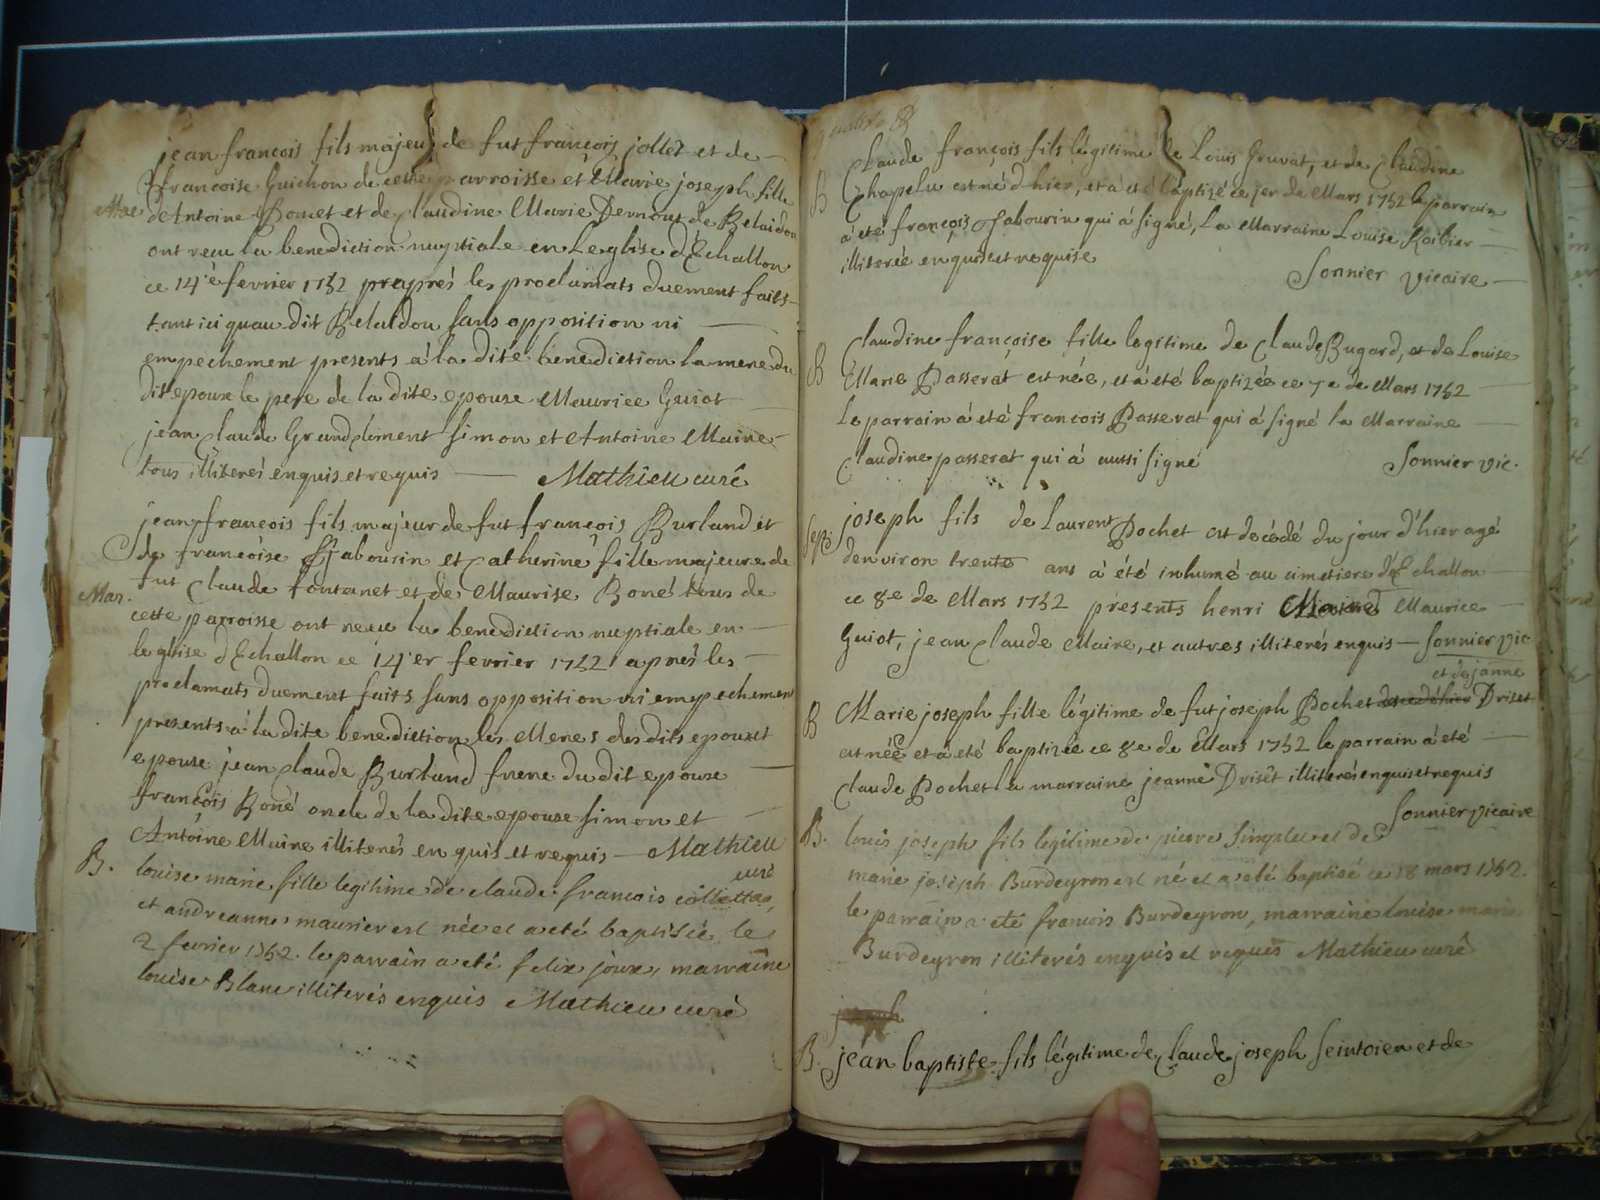 jean francois fils majeur de fut françois jollet et de
francoise Guichon de cette parroisse et Marie joseph fille
Mar. de Antoine Bomet et de claudine Marie Pernout de Belaidou
ont recu la benediction nuptiale en Leglise d'Echallon
ce 14.e fevrier 1752 preprés les proclamats duement faits
tant ici quau dit Belaidou sans opposition ni
empechement presents a la dite benediction la mere du
dit epoux le pere de la dite epouse Maurice Guiot
jean claude Grandclement simon et Antoine Maire
tous illiterés enquis et requis Mathieu curé
jean francois fils majeur de fut françois Burland et
de francoise Tabourin et catherine fille majeure de
Mar. fut Claude fontanet et de Maurise Boné tous de
cette parroisse ont recu la benediction nuptiale en
leglise dEchallon ce 14.er fevrier 1752 apres les
proclamats duement faits sans opposition ni empechement
presents a la dite benediction les Meres desdits epoux et
epouse jean claude Burland frere du dit epoux
françois Boné oncle de la dite epouse simon et
Antoine Maire illiterés enquis et requis Mathieu
curé
B. louise marie fille legitime de claude francois collettaz
et andreanne maurier est née et a eté baptisée le
2 fevrier 1752. le parrain a eté felix joux, marraine
louise Blanc illiterés enquis Mathieu curé
Claude françois fils légitime de Louis Gruvat, et de Claudine
B Chapelu est né d'hier, et a eté baptizé ce 1er de Mars 1752 le parrain
a été françois Tabourin qui á signé, La Marraine Louise Roibier
illiterée enquise et requise
Sonnier vicaire
Claudine françoise fille legitime de Claude Bugard, et de Louise
B Marie Passerat est née, et a été baptizée ce 7e de Mars 1752
le parrain á eté francois Passerat qui á signé la Marraine
Claudine passerat qui á aussi signé Sonnier vic.
Sep. joseph fils de Laurent Pochet est decédé du jour d'hier agé
denviron trente ans á été inhumé au cimetiere d'Echallon
ce 8e de Mars 1752 présents henri Maurice
Guiot, jean claude Maire, et autres illiterés enquis Sonnier vic.
et de janne
B Marie joseph fille légitime de fut joseph Pochet Driset
est née et a été baptizée ce 8e de Mars 1752 le parrain á eté
claude Pochet la marraine jeanne Driset illiterés enquis et requis
Sonnier vicaire
B. louis joseph fils legitime de pierre simplet et de
marie joseph Burdeyron est né et a eté baptisé ce 18 mars 1752.
le parrain a eté francois Burdeyron, marraine louise marie
Burdeyron illiterés enquis et requis Mathieu curé
joseph
B. jean baptiste fils légitime de claude joseph seintoien et de